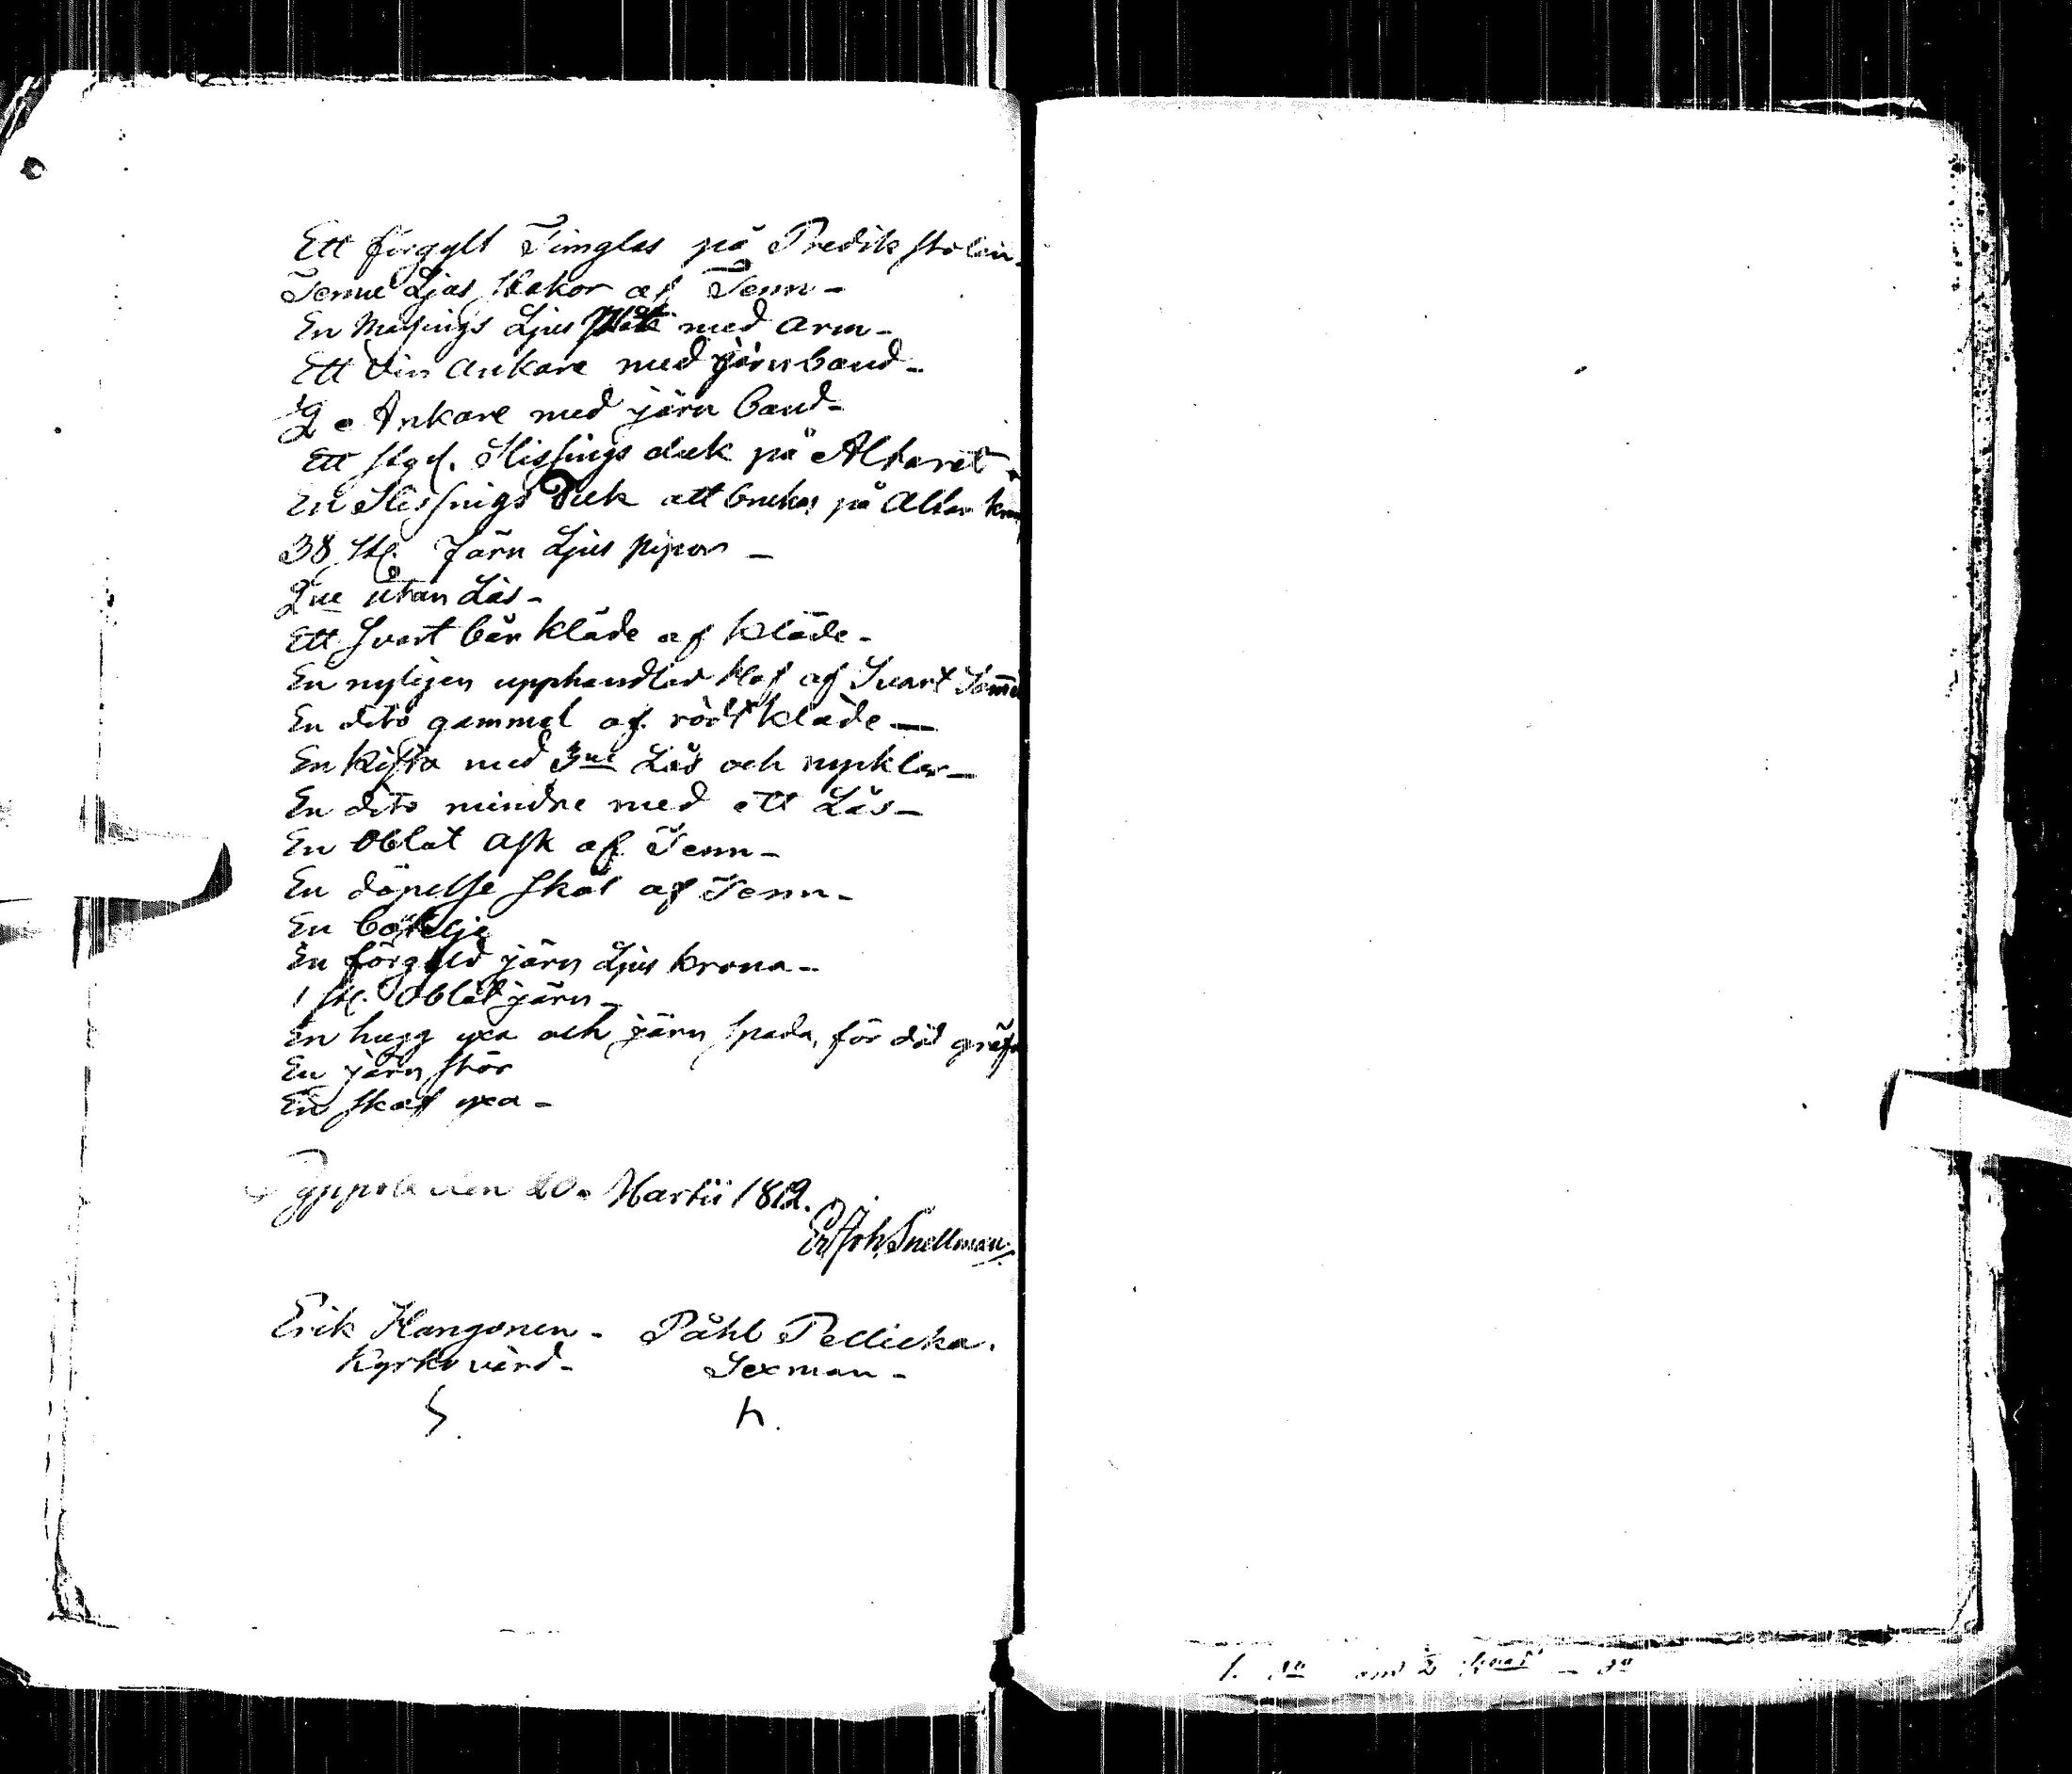 Ett förgylt Timglas på Predikstolen
Tenne Ljus stakor af Tenn -
En Massings Ljus Plåt med arm -
Ett vin ankare med järnband -
2 - Ankare med järn band -
Ett st. Hissings duk på Altaret -
En Hissings Duk att brukas på Altar
38 st. Järn Ljus pipor -
2ne utan Lås -
Ett svart bår kläde af kläde -
En nyligen upphandlad Haf af Svart
En dito gammal af rödt kläde -
En kista med 3ne Lås och nycklar -
En dito mindre med ett Lås -
En Oblat Ask af Tenn -
En döpelse skål af Tenn -
En botelje
En förgyld järn Ljus krona -
1 st. Oblat järn -
En hugg yxa och järn spada, för död gräf
En järn stör
En skaf yxa -
den 20. Martii 1812.
Joh. Snellman.
Erik Hangonen - Påhl Pellicka.
Kyrkovärd - Sexman -